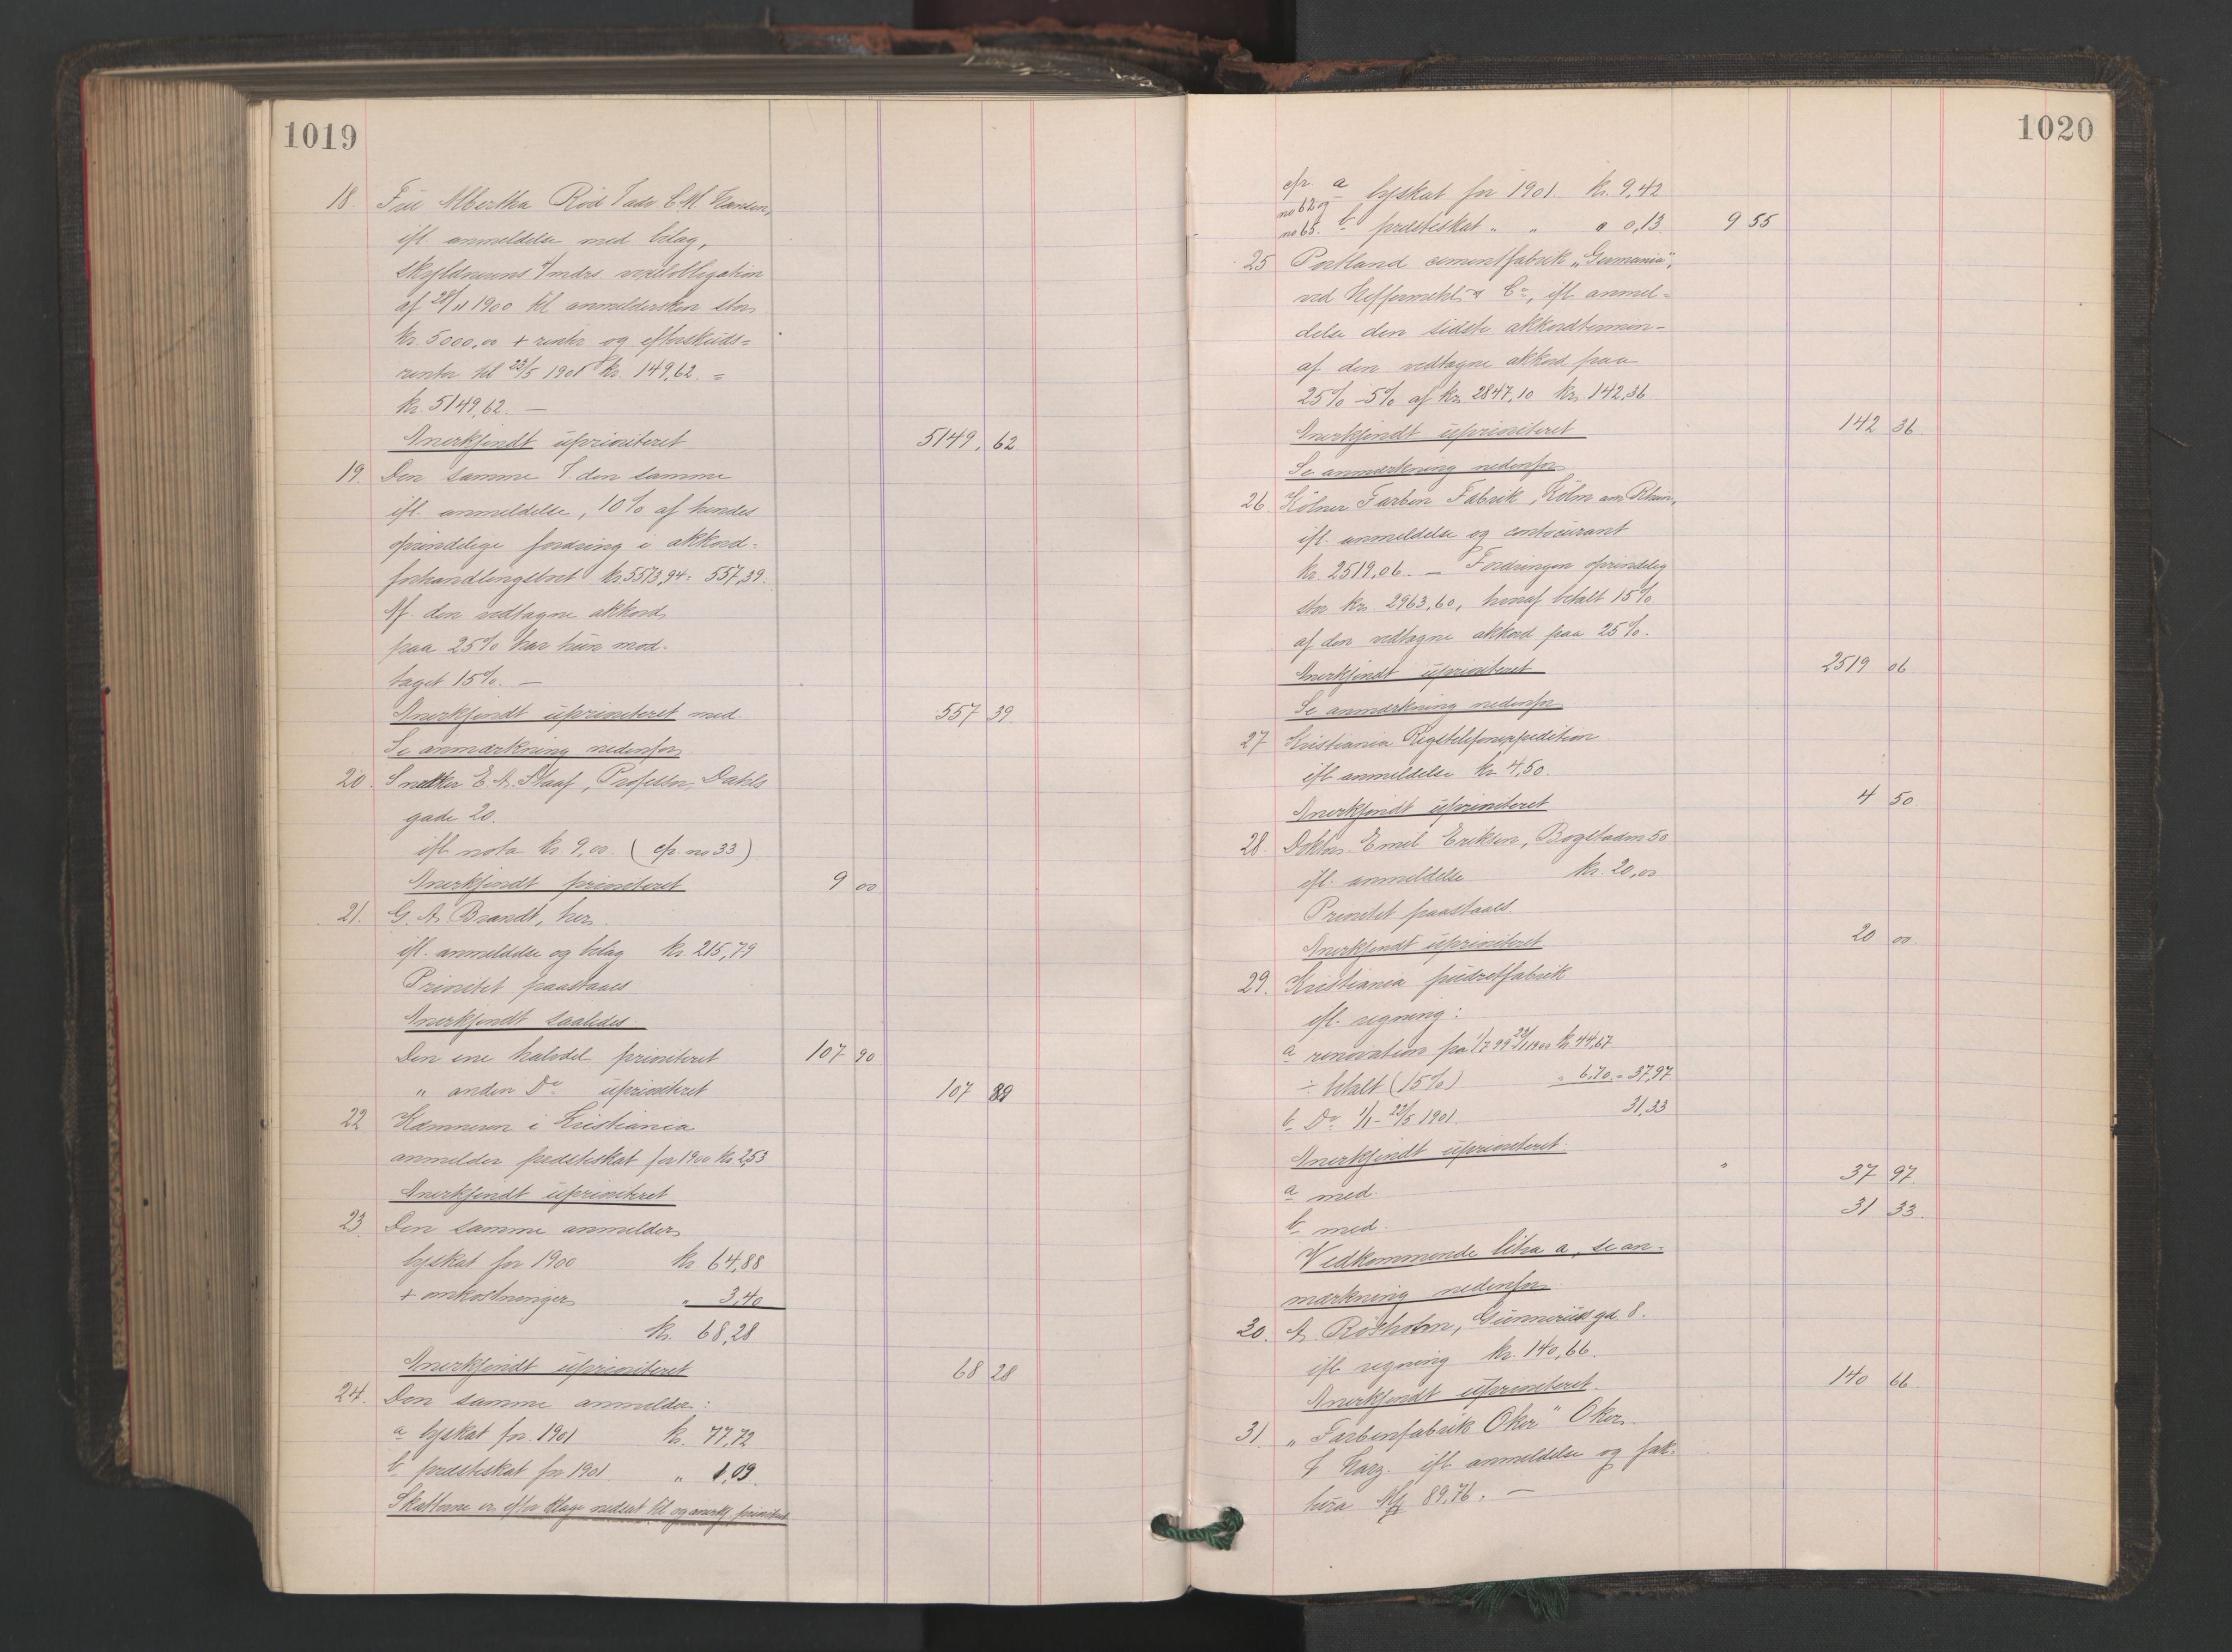 1019
18. Frue Albertha Röd v adv. C.M. Hansen,
ifl. anmeldelse med bilag,
skyldnerens 4/mdrs vexelobligation
af 28/11 1900 til anmeldersken stor
kr. 5000,00 + renter og efterskuds=
renter til 23/5 1901 kr. 149,62. =
kr. 5149,62. —
Anerkjendt üprioriteret 5149, 62
19. Den samme v. den samme
ifl. anmeldelse, 10% af hendes
oprindelige fordring i akkord-
forhandlingsboet kr. 5573,94 = 557,39.
Af den vedtagne akkord
paa 25% har hün mod-
taget 15%. —
Anerkjendt üprioriteret med 557 39.
Se anmærkning nedenfor
20. Snedker E. A. Staaf, Professor Dahls
gade 20.
ifl. nota kr. 9,00. (cfr. no 33)
Anerkjendt prioriteret 9 00
21. G. A. Brandt, her
ifl. anmeldelse og bilag kr. 215,79
Prioritet paastaaes
Anerkjendt saaledes:
Den ene halvdel prioriteret 107 90
„ anden Do üprioriteret 107 89
22 Kæmneren i Kristiania
anmelder prestskat for 1900 kr. 2,53
Anerkjendt üprioriteret
23. Den samme anmelder
byskat for 1900 kr. 64,88
+ omkostninger „ 3,40
kr. 68,28
Anerkjendt üprioriteret 68 28
24. Den samme anmelder:
a byskat for 1901 kr. 77,72
b presteskat for 1901 „ 1,09.
Skatterne er efter klage nedsat til og anerkj. prioritet
1020
cfr. a byskat for 1901. kr. 9,42
no 62 og
no 65. b presteskat „ „ „ 0,13. 9 55
25 Portland cementfabrik „Germania",
ved Heffermehl & Co, ifl. anmel=
delse den sidste akkordtermin-
af den vedtagne akkord paa
25% - 5% af kr. 2847,10 kr. 142,36
Anerkjendt üprioriteret 142 36
Se anmærkning nedenfor
26. Kölner Farben Fabrik, Köln am Rhein,
ifl. anmeldelse og contocurant
kr. 2519,06. — Fordringen oprindelig
stor kr. 2963,60, heraf betalt 15%
af den vedtagne akkord paa 25%.
Anerkjendt üprioriteret 2519 06
Se anmærkning nedenfor
27 Kristiania Rigstelefonexpedition
ifl. anmeldelse kr. 4,50.
Anerkjendt üprioriteret. 4 50
28. Doktor Emil Eriksen, Bogstadvn 50
ifl. anmeldelse kr. 20,00
Prioritet paastaaes.
Anerkjendt üprioriteret 20 00.
29. Kristiania püdretfabrik
ifl. regning:
a renovation fra 1/7 99 - 22/1 1900 kr. 44,67.
÷ betalt (15%) „ 6,70 = 37,97
b Do 1/1 - 23/5 1901. 31,33
Anerkjendt üprioriteret:
a med. „ 37 97
b med. 31 33.
Vedkommende litra a, se an-
mærkning nedenfor
30. A. Rösholm, Günnerüsgd. 8.
ifl. regning kr. 140,66.
Anerkjendt üprioriteret. 140 66
31. „Farbenfabrik Oker" Oker
v Harz. ifl. anmeldelse og fak-
tura Mk 89,76. —